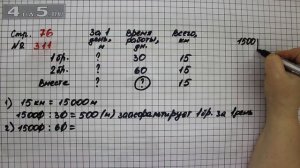 4APS.RU
Стр. 76
№ 311
За 1 день, м
Время работы, дн.
Всего, км
1 бр. ? 30 15
2 бр. ? 60 15
Вместе ? ? 15
1) 15 км = 15000 м
15000 : 30 = 500 (м) заасфальтирует 1 бр. за 1 день
2) 15000 : 60 =
1500